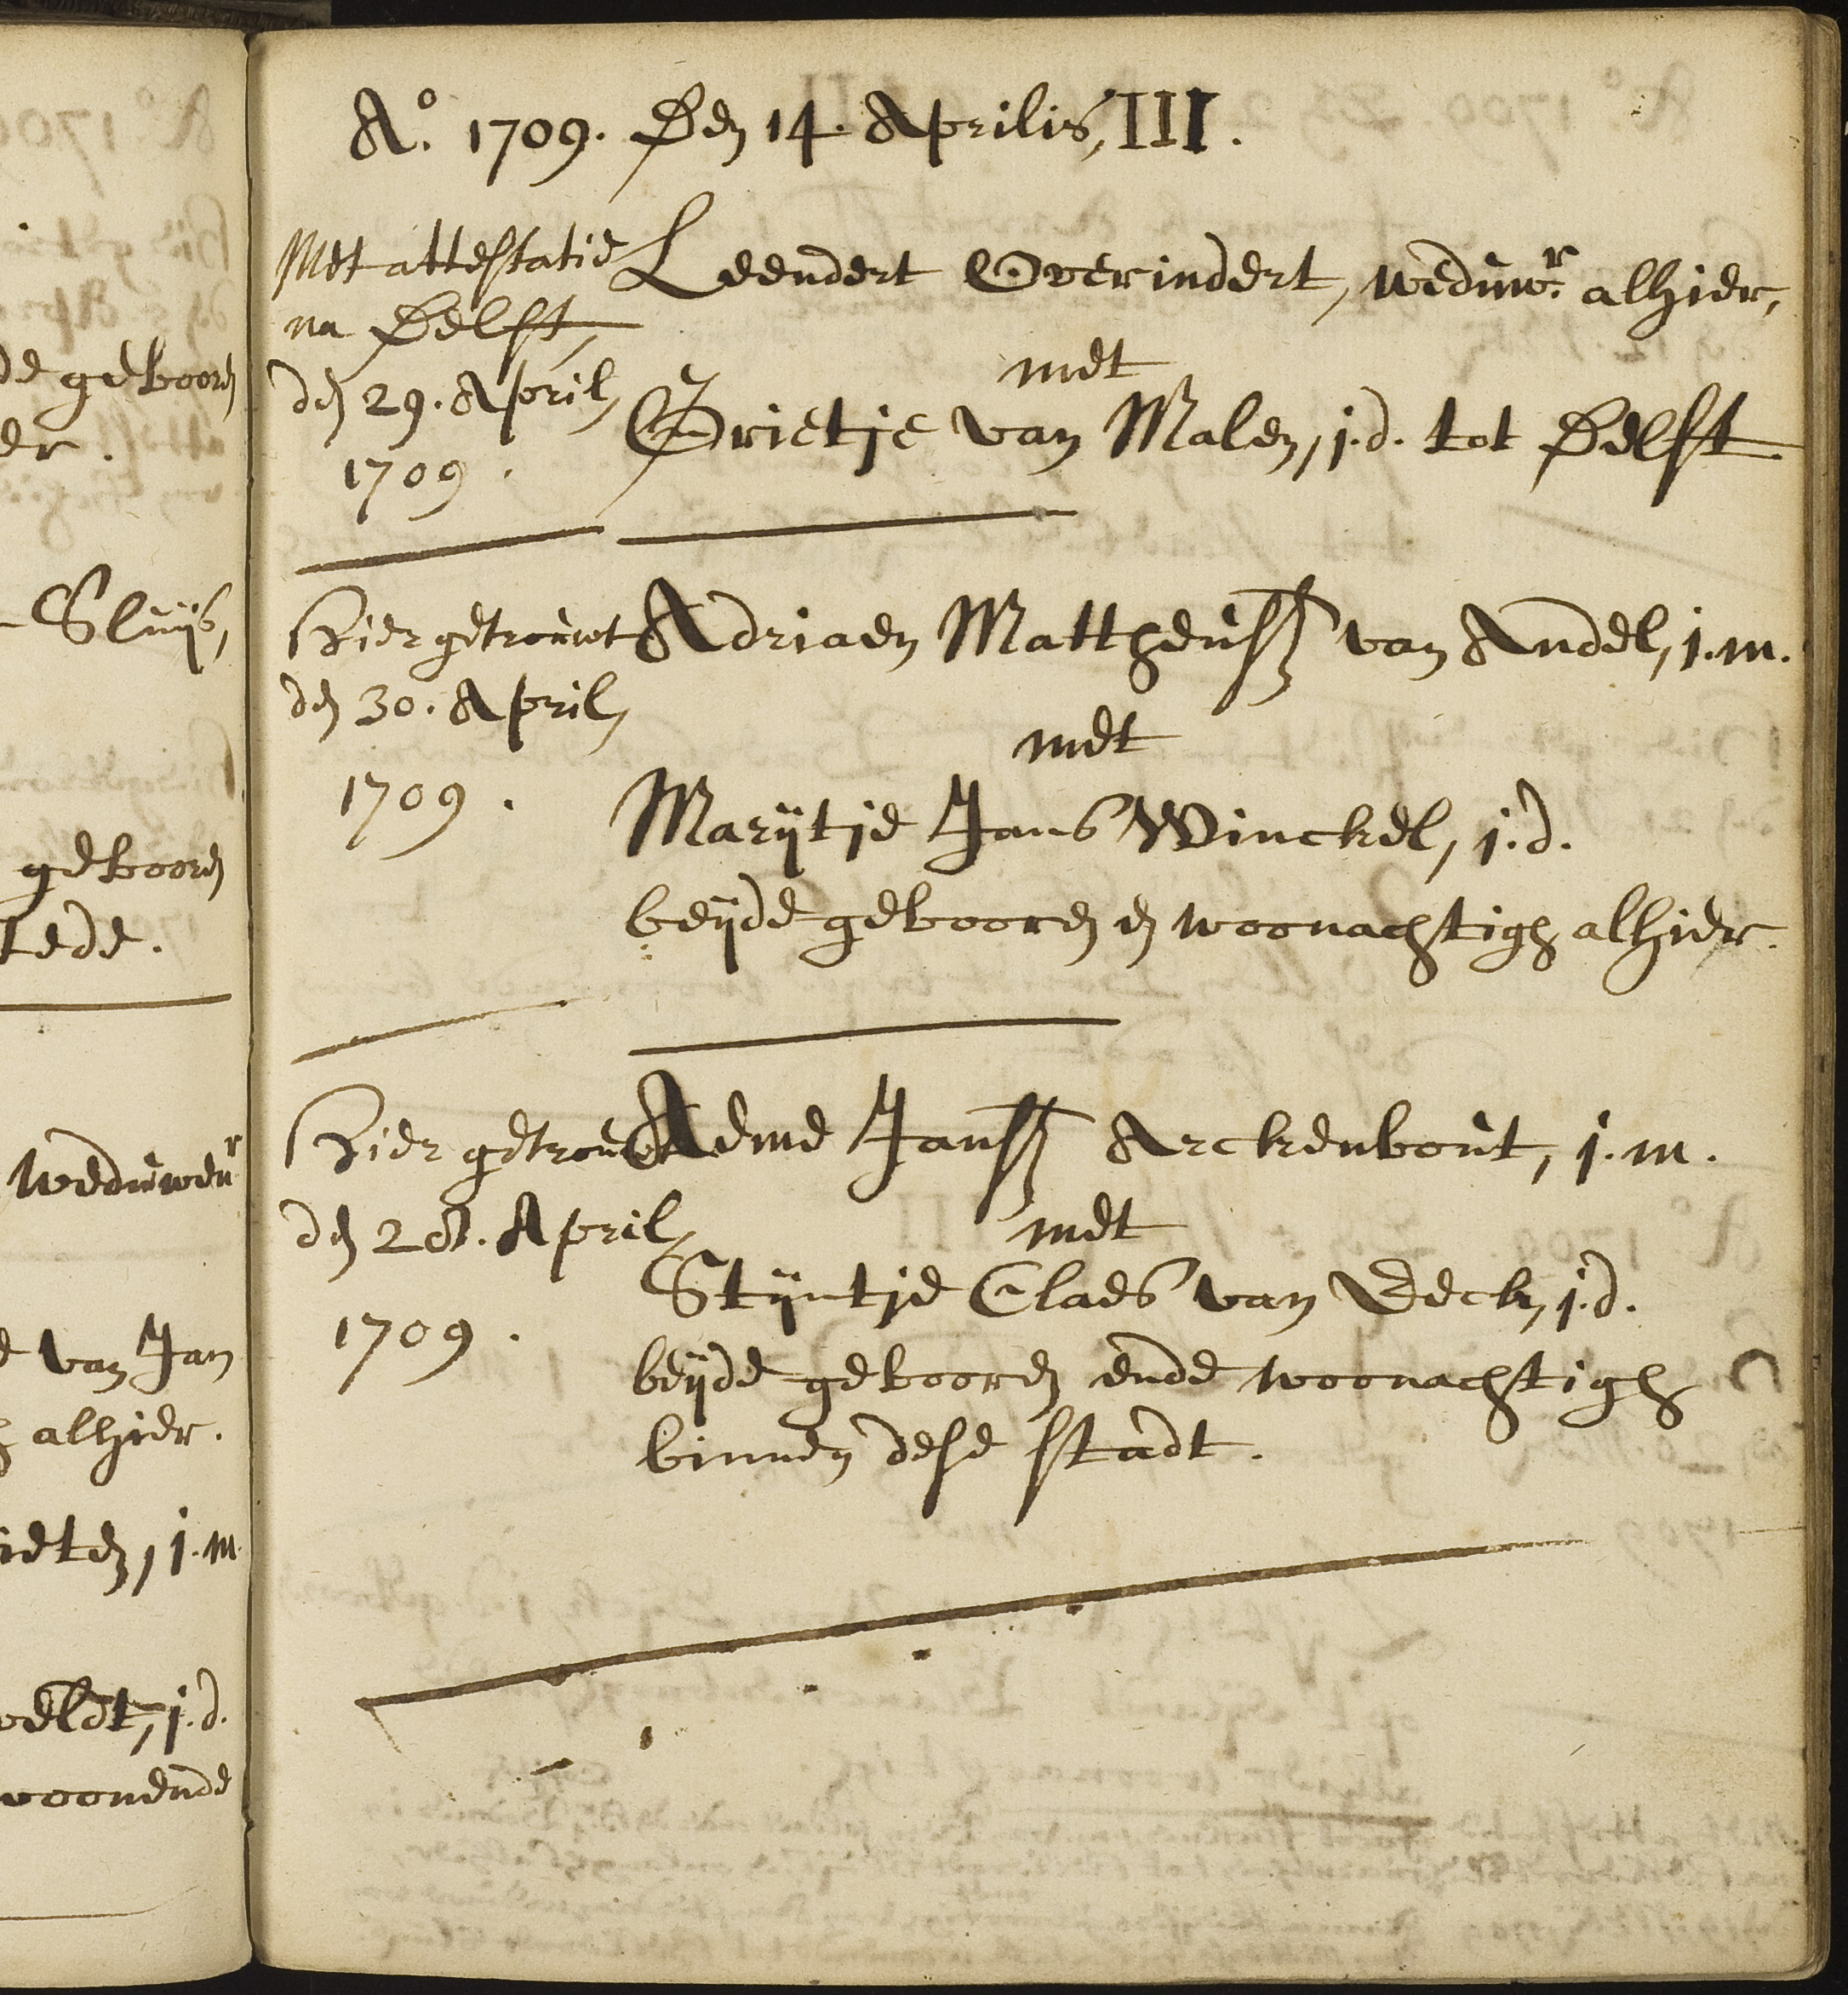 Aº. 1709. Den 14. Aprilis, III.
Met attestatie
na Delft,
deŋ 29. April,
1709.
Leendert Overindert, weduwr. alhier,
met
Grietje van Malen, j.d. tot Delft
Hier getrouwt
den 30. April,
1709.
Adriaen Mattheussz van Andel, j.m.
met
Marijtje Jans Winckel, j.d.
beijde gebooren en woonachtigh alhier.
Hier getrouwt
den 28. April,
1709.
Aeme Janssz Arckenbout, j.m.
met
Stijntje Claes van Beeck, j.d.
beijde gebooren ende woonachtigh
binnen dese stadt.
de gebooren
Sluijs,
gebooren
weduwenr
van Jan
alhier.
j.m.
j.d.
woonende